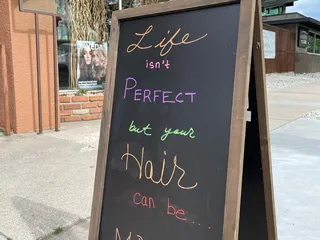 Life
isn't
PERFECT
but your
Hair
can be...